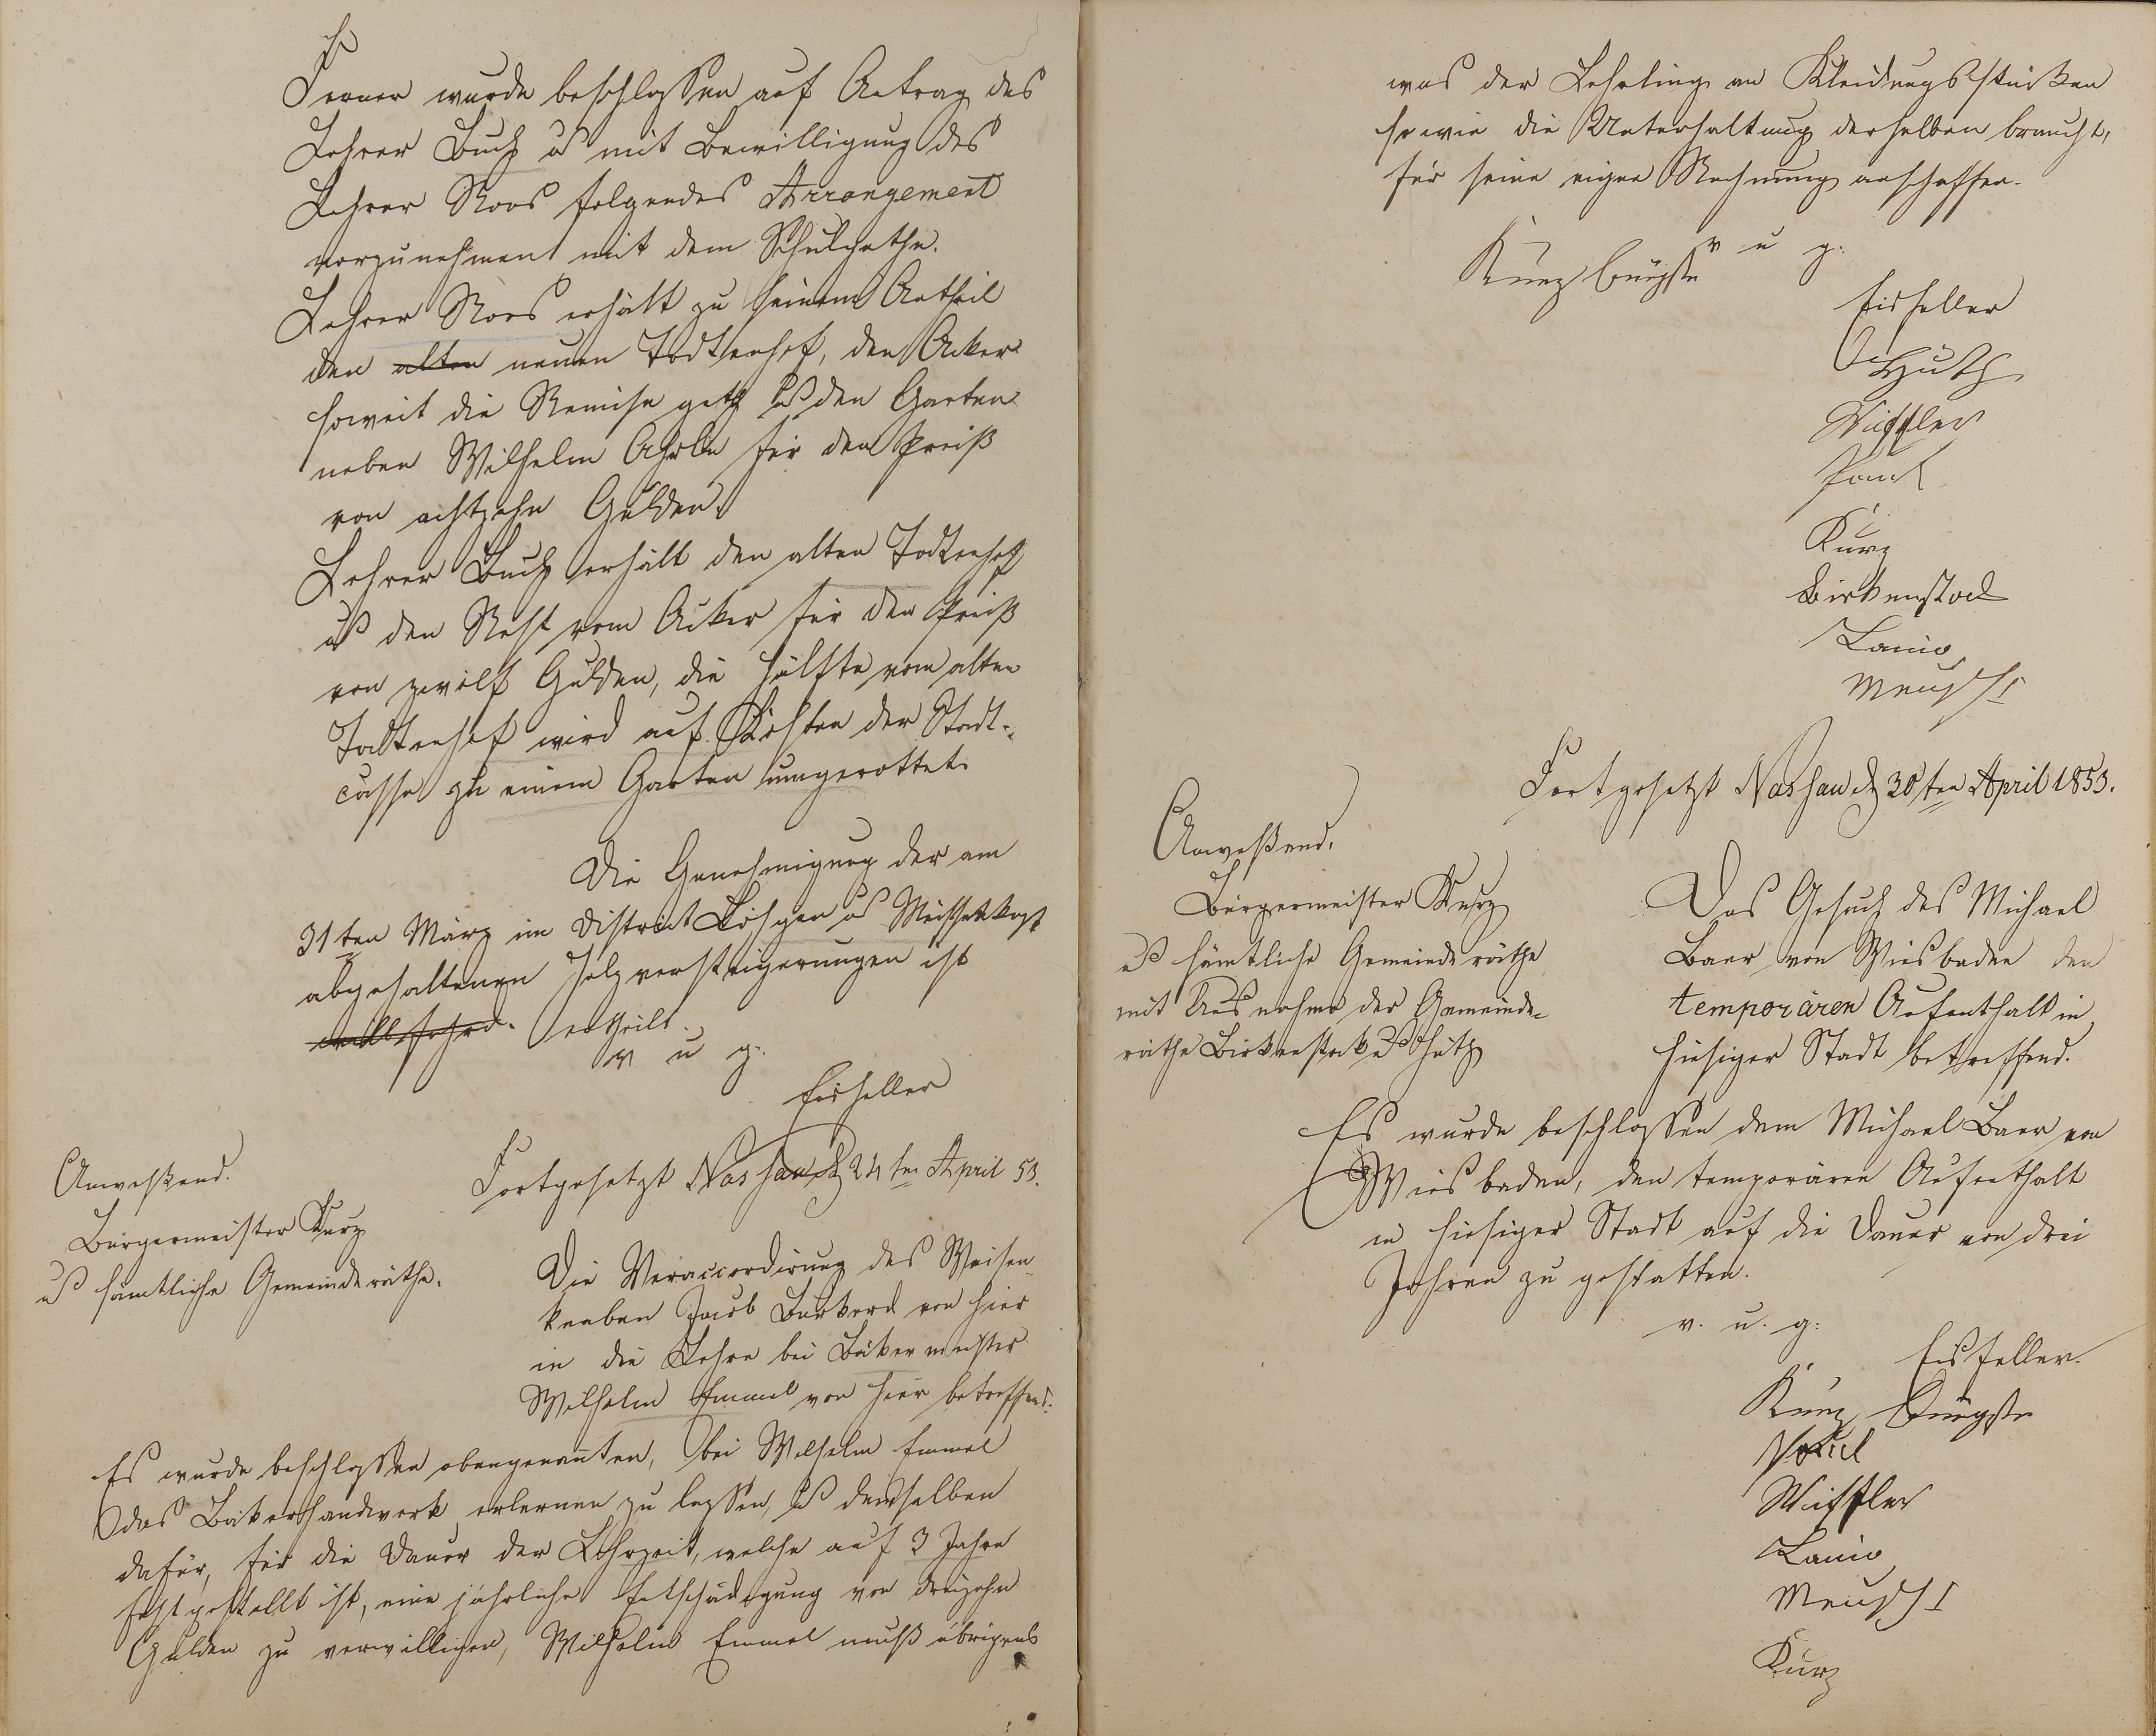 Ferner wurde beschlossen auf Antrag des
Lehrer Buch u mit Bewilligung des
Lehrer Roos folgendes Arrangement
vorzunehmen mit dem Schulguthe.
Lehrer Roos erhält zu seinem Antheil
den alten neuen Todtenhof, den Acker
soweit die Remise geth u den Garten
neben Wilhelm für den Preiß
von achtzehn Gulden.
Lehrer Buch erhält den alten Todtenhof
u den Rest vom Acker für den Preiß
von zwölf Gulden, die Hälfte vom alten
Todtenhof wird auf Kosten der Stadt-
casse zu einem Garten umgerottet.
Die Genehmigung der am
31ten März im District u
abgehaltenen Holzversteigerungen ist
willfahrd. ertheilt.
v u g.
Eisfeller
Fortgesetzt Nassau d 24ten April 53.
Anweßend.
Bürgermeister Kurz
u sämtliche Gemeinderäthe.
Die Veraccordirung des Waisen
knaben Jacob Burkard von hier
in die Lehre bei Bäkermeister
Wilhelm Emmel von hier betreffend.
Es wurde beschlossen obengenannten, bei Wilhelm Emmel
das Bäkerhandwerk erlernen zu lassen, u demselben
dafür, für die Dauer der Lehrzeit, welche auf 3 Jahre
festgestellt ist, eine jährliche Entschädigung von dreizehn
Gulden zu verwilligen, Wilhelm Emmel muß übrigens
was der Lehrling an Kleidungsstücken
sowie die Unterhaltung derselben braucht,
für seine eigne Rechnung anschaffen.
v u g.
Kurz Bürgstr
Eisfeller
Huth
Paul
Kurz
Birkenstock
Lanio
Meusch I
Fortgesetzt Nassau d 30ten April 1853.
Anweßend.
Bürgermeister Kurz
u sämtliche Gemeinderäthe
mit Ausnahme der Gemeinde-
räthe Birkenstock u Huth
Das Gesuch des Michael
Baer von Wiesbaden den
temporären Aufenthalt in
hiesiger Stadt betreffend.
Es wurde beschlossen dem Michael Baer von
Wiesbaden, den temporären Aufenthalt
in hiesiger Stadt auf die Dauer von drei
Jahren zu gestatten.
v. u. g:
Eisfeller.
Kurz Bürgstr
Lanio
Meusch I
Kurz